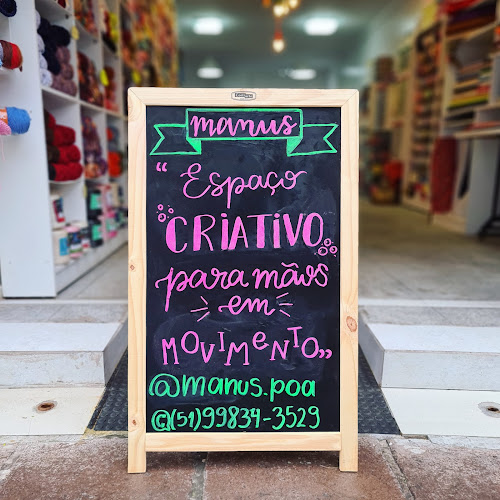 manus
"Espaço
CRIATIVO
para mãos
em
MOVIMENTO"
@manus.poa
(51)99834-3529